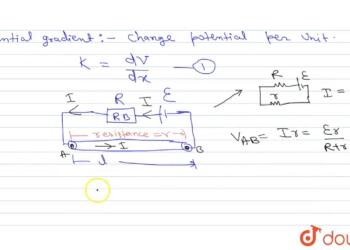 ntial gradient:- Change potential per Unit.
K = dV/dx — ①
I R I ε
RB
resistance = r
A → I B
l
R ε
r
I =
V_AB = Ir = εr/R+r
dou